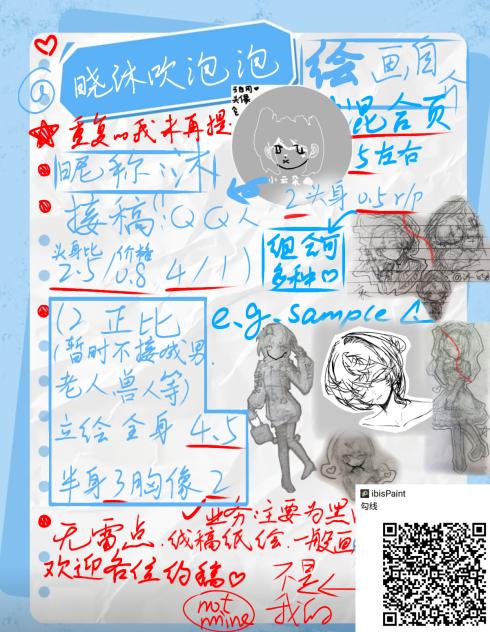 @晓沐吹泡泡
绘画自
混合页
5左右
重复的我未再提
头像
小云朵画
昵称：沐
接稿！QQ人
2头身 0.5r/p
头身比/价格
2.5/0.8 4/1
组合可
多种♡
(2 正比
(暂时不接成男、
老人、兽人等)
立绘全身 4.5
半身3胸像2
e.g. sample
业务：主要为黑
无雷点、线稿纸绘、一般画
欢迎各位约稿♡
不是
我的
not
mine
ibisPaint
勾线